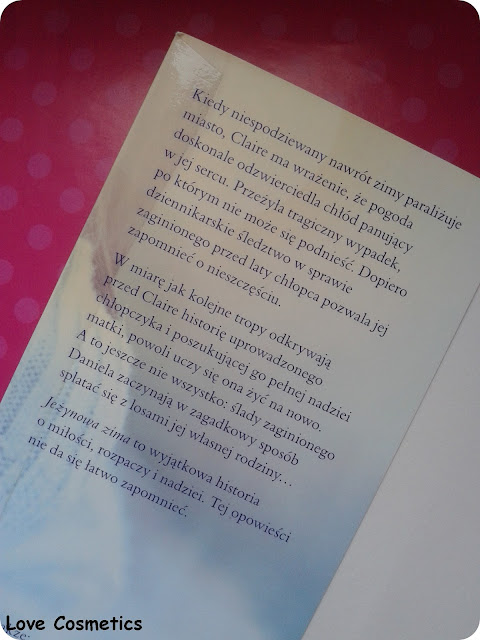 Kiedy niespodziewany nawrót zimy paraliżuje
miasto, Claire ma wrażenie, że pogoda
doskonale odzwierciedla chłód panujący
w jej sercu. Przeżyła tragiczny wypadek,
po którym nie może się podnieść. Dopiero
dziennikarskie śledztwo w sprawie
zaginionego przed laty chłopca pozwala jej
zapomnieć o nieszczęściu.
W miarę jak kolejne tropy odkrywają
przed Claire historię uprowadzonego
chłopczyka i poszukującej go pełnej nadziei
matki, powoli uczy się ona żyć na nowo.
A to jeszcze nie wszystko: ślady zaginionego
Daniela zaczynają w zagadkowy sposób
splatać się z losami jej własnej rodziny...
Jeżynowa zima to wyjątkowa historia
o miłości, rozpaczy i nadziei. Tej opowieści
nie da się łatwo zapomnieć.
Love Cosmetics